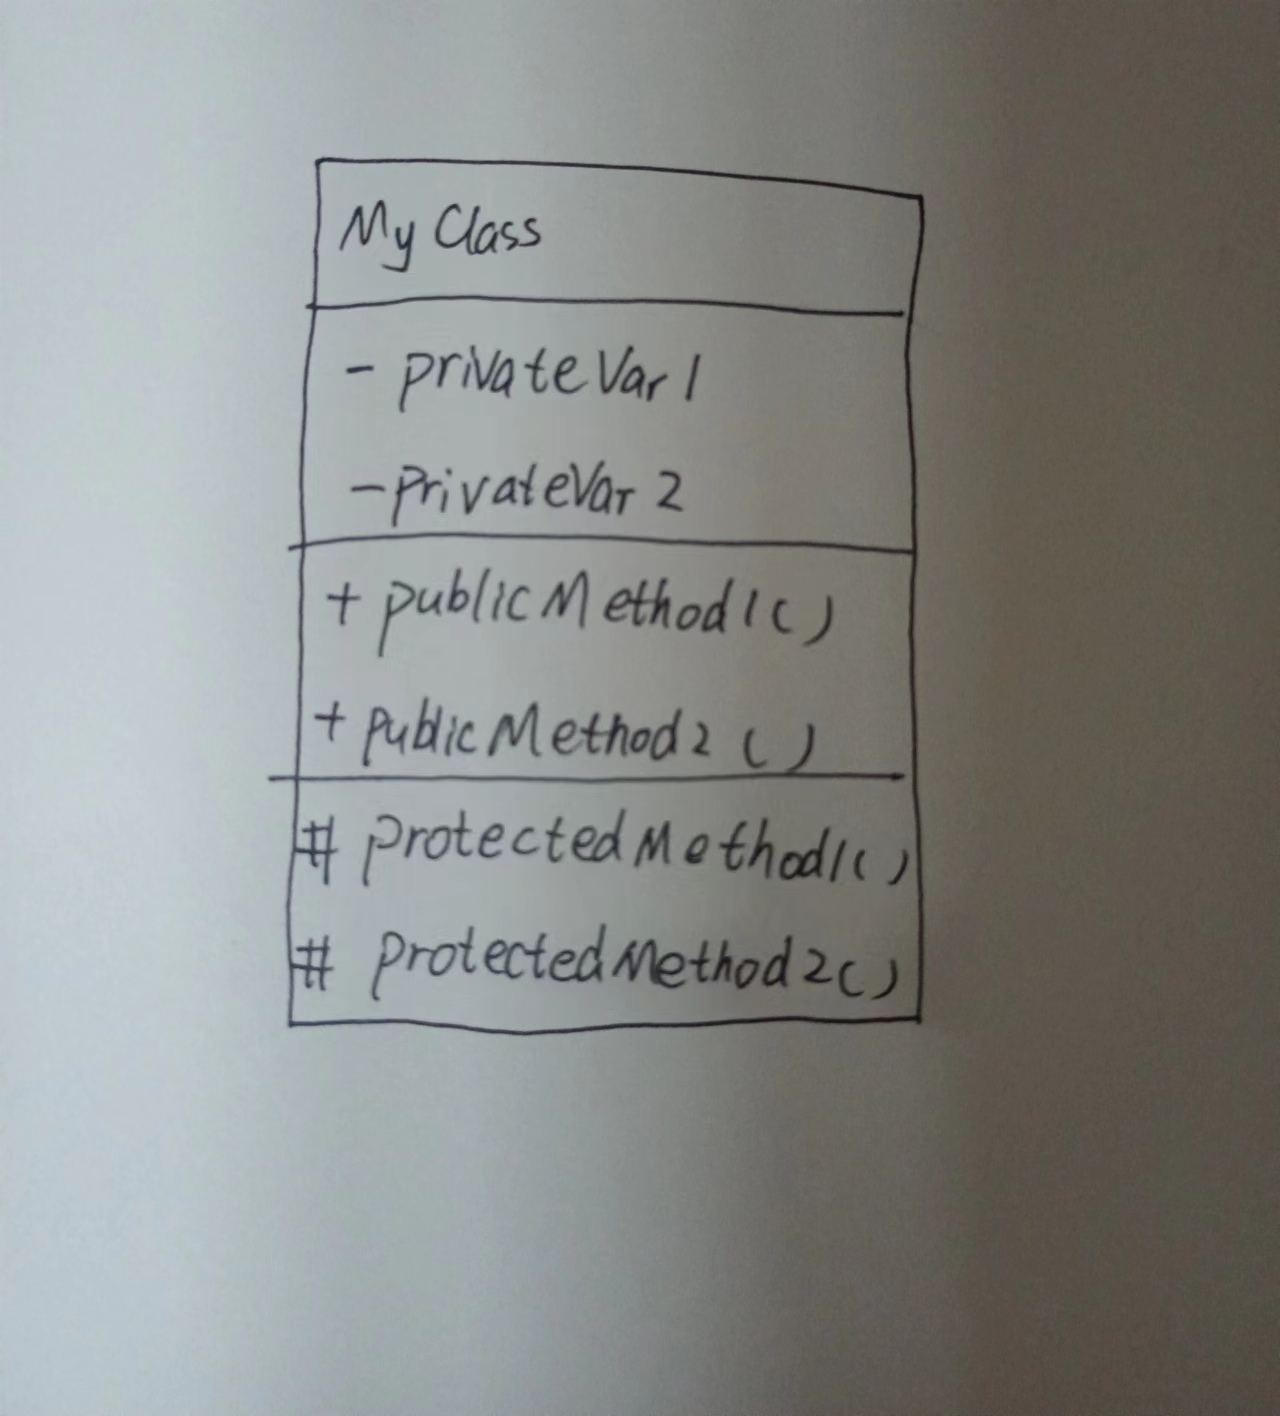 My Class
- privateVar1
- privateVar2
+ publicMethod1()
+ publicMethod2()
# protectedMethod1()
# protectedMethod2()